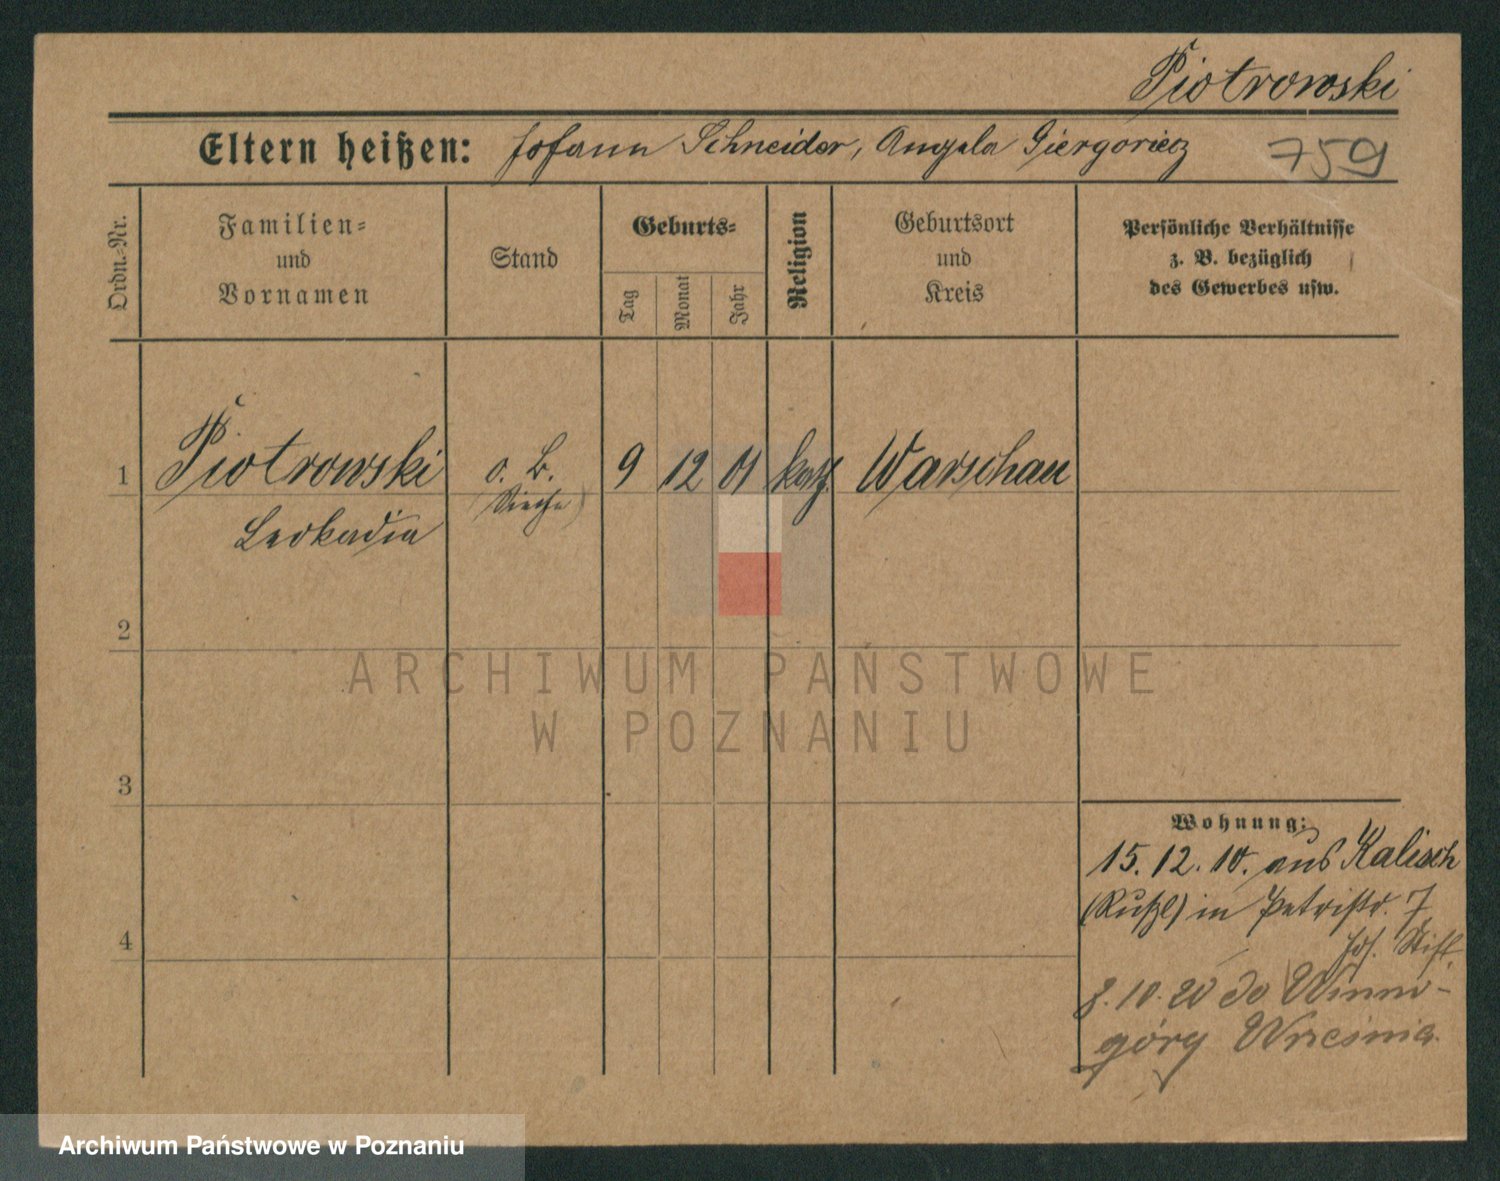 Piotrowski
Eltern heißen: Johann Schneider, Angela Giergoriecz 759
Ordn.-Nr.
Familien-
und
Vornamen
Stand
Geburts-
Tag
Monat
Jahr
Religion
Geburtsort
und
Kreis
Persönliche Verhältnisse
z. B. bezüglich
des Gewerbes usw.
1 Piotrowski o. B. 9 12 01 kath. Warschau
Leokadia
2
3
4
Wohnung:
15.12.10. aus Kalisch
(Rußl) in Petristr. 7
Jos. Stift.
8.10.20 do Winno-
góry Września
ARCHIWUM PAŃSTWOWE
W POZNANIU
Archiwum Państwowe w Poznaniu